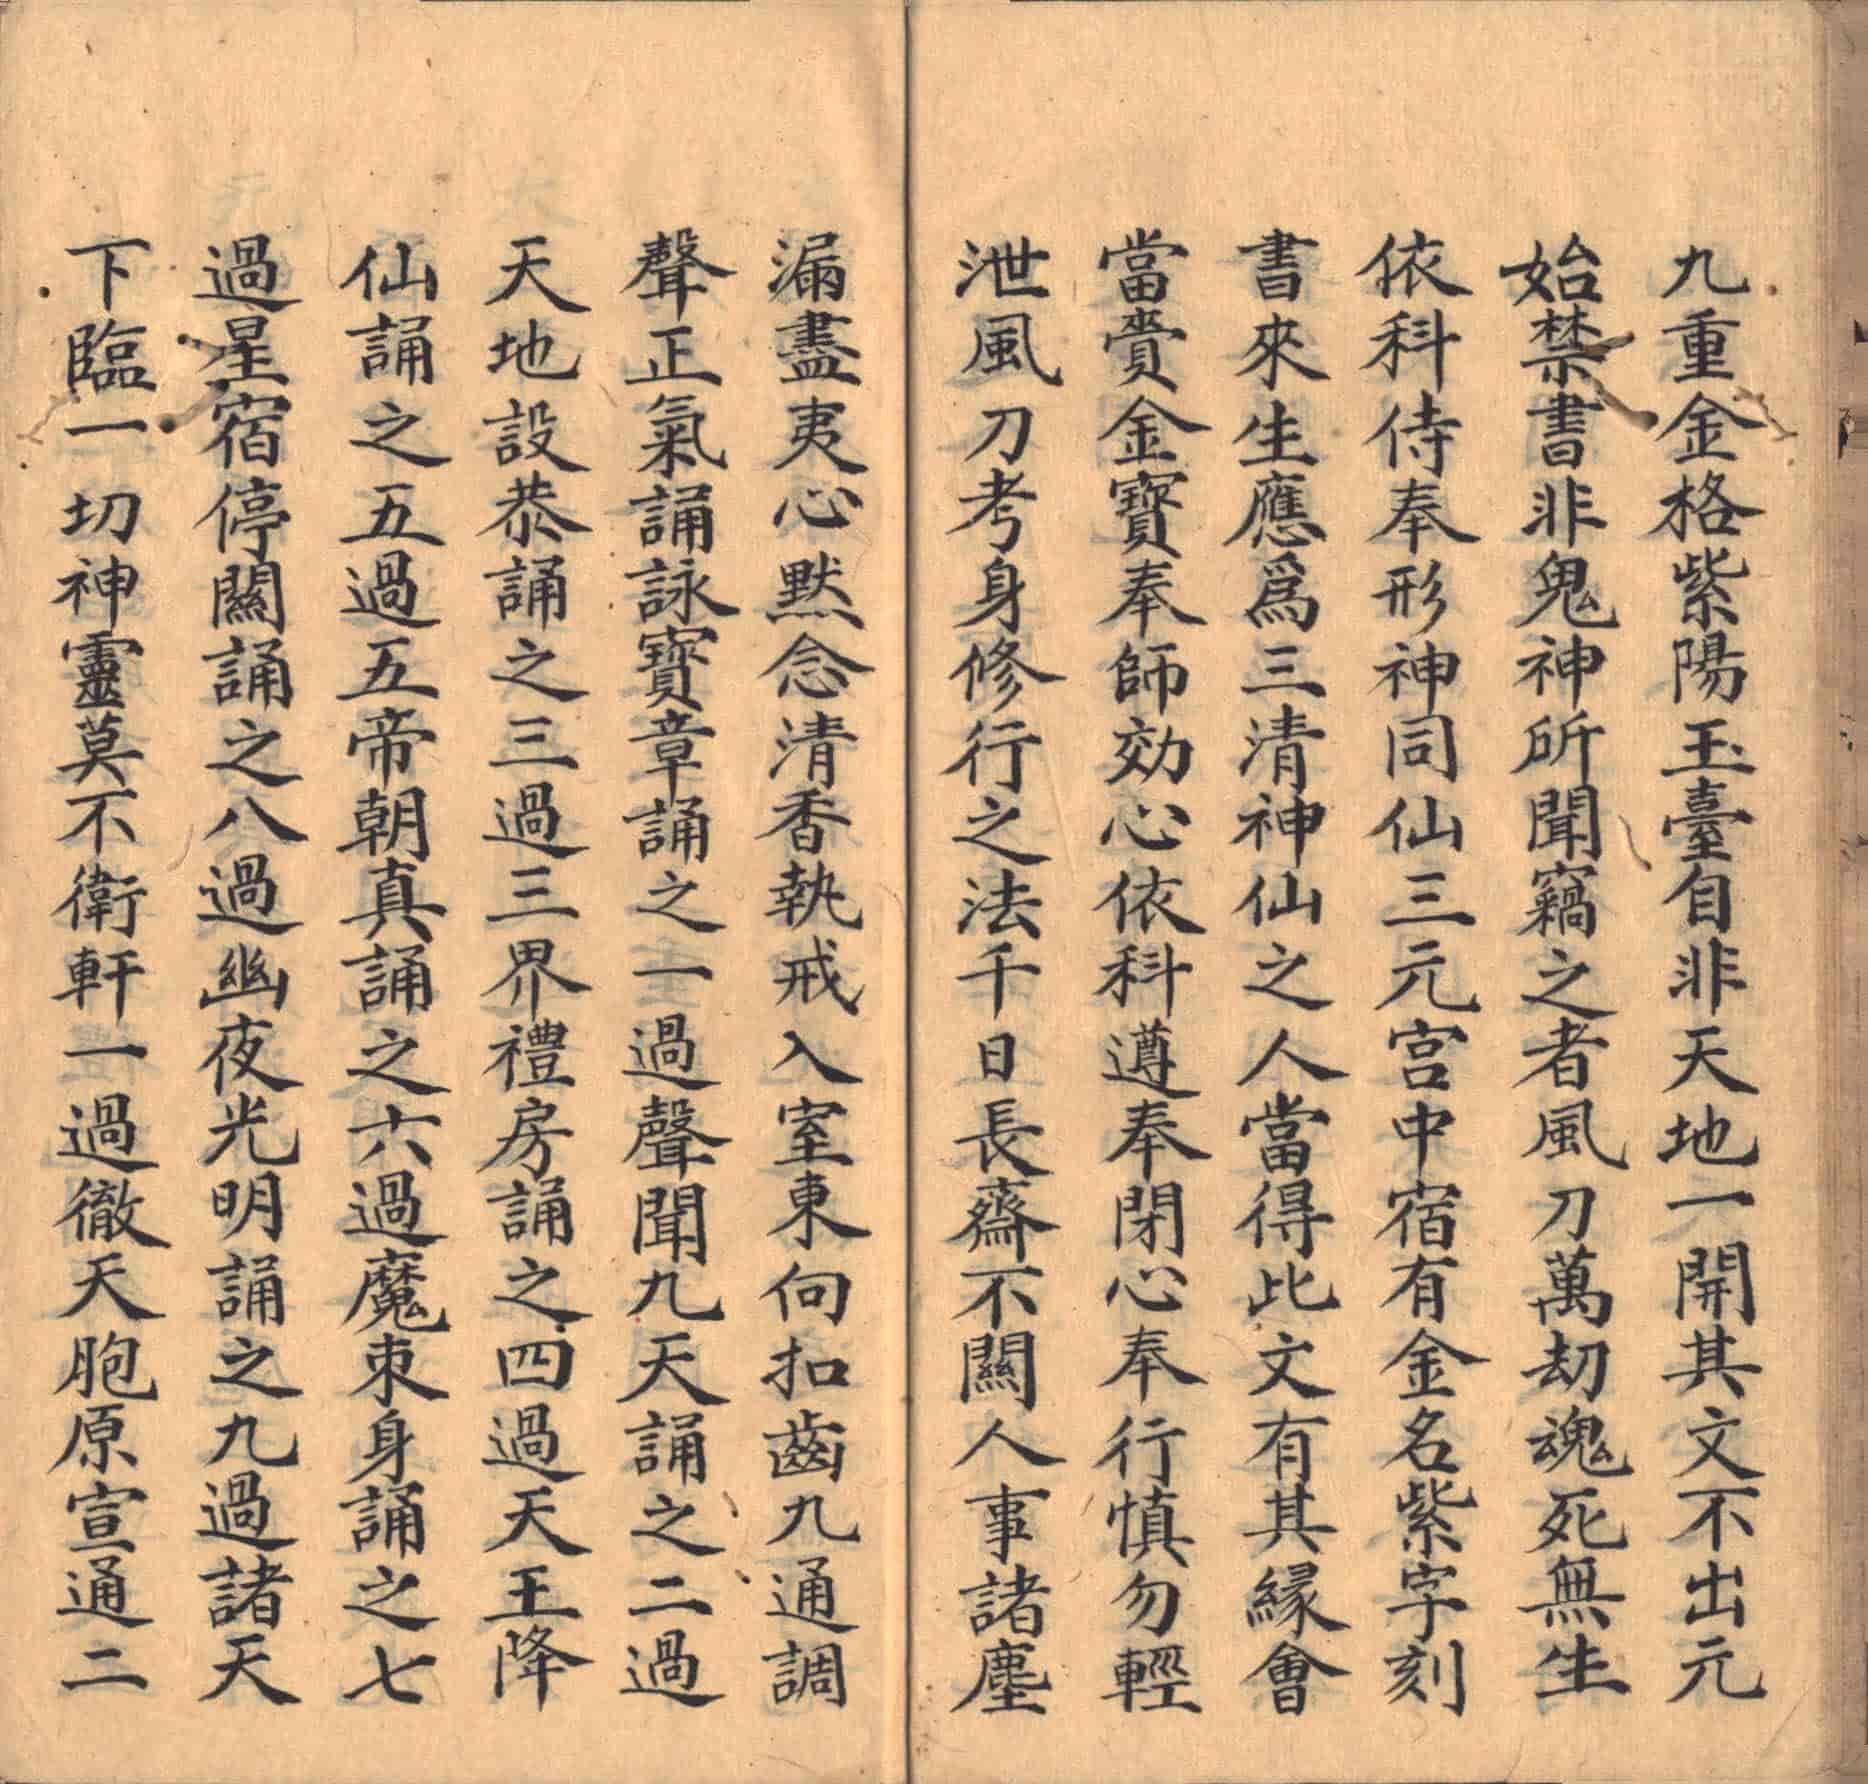 九重金格紫陽玉臺自非天地一開其文不出元
始禁書非鬼神所聞竊之者風刀萬劫魂死無生
依科侍奉形神同仙三元宮中宿有金名紫字刻
書來生應爲三清神仙之人當得此文有其緣會
當賫金寶奉師効心依科遵奉閉心奉行慎勿輕
泄風刀考身修行之法千日長齋不關人事諸塵
漏盡夷心默念清香執戒入室東向扣齒九通調
聲正氣誦詠寶章誦之一過聲聞九天誦之二過
天地設恭誦之三過三界禮房誦之四過天王降
仙誦之五過五帝朝真誦之六過魔束身誦之七
過星宿停關誦之八過幽夜光明誦之九過諸天
下臨一切神靈莫不衛軒一過徹天胞原宣通二